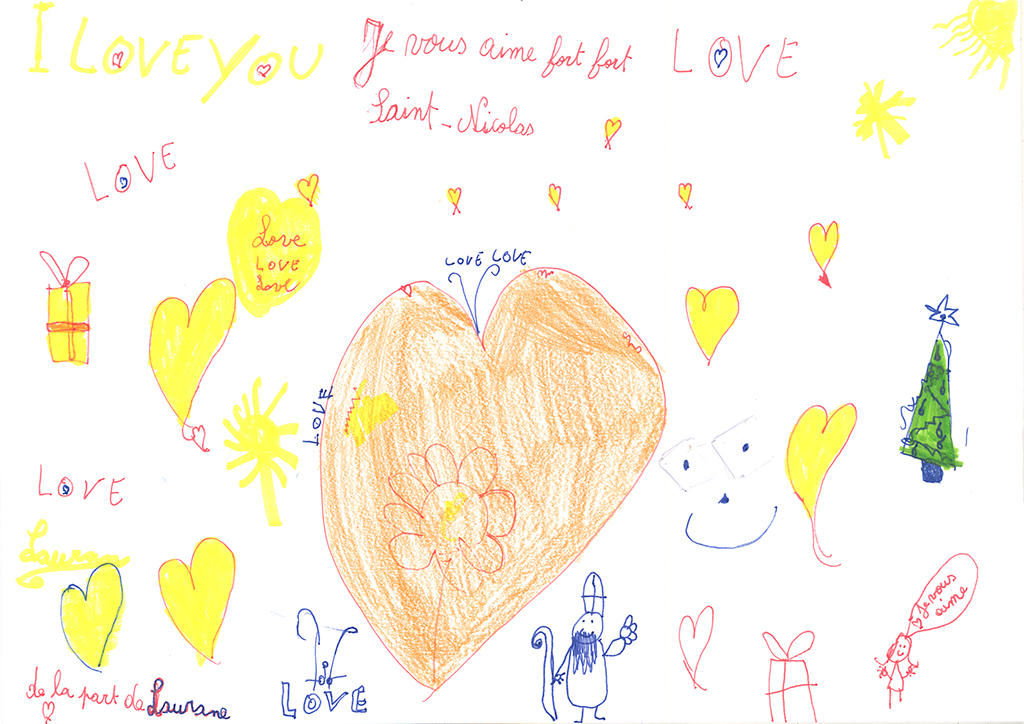 I LOVE YOU
Je vous aime fort fort
Saint-Nicolas
LOVE
LOVE
Love
LOVE
Love
LOVE LOVE
LOVE
LOVE
Lauran
de la part de Laurane
LOVE
Je vous
aime